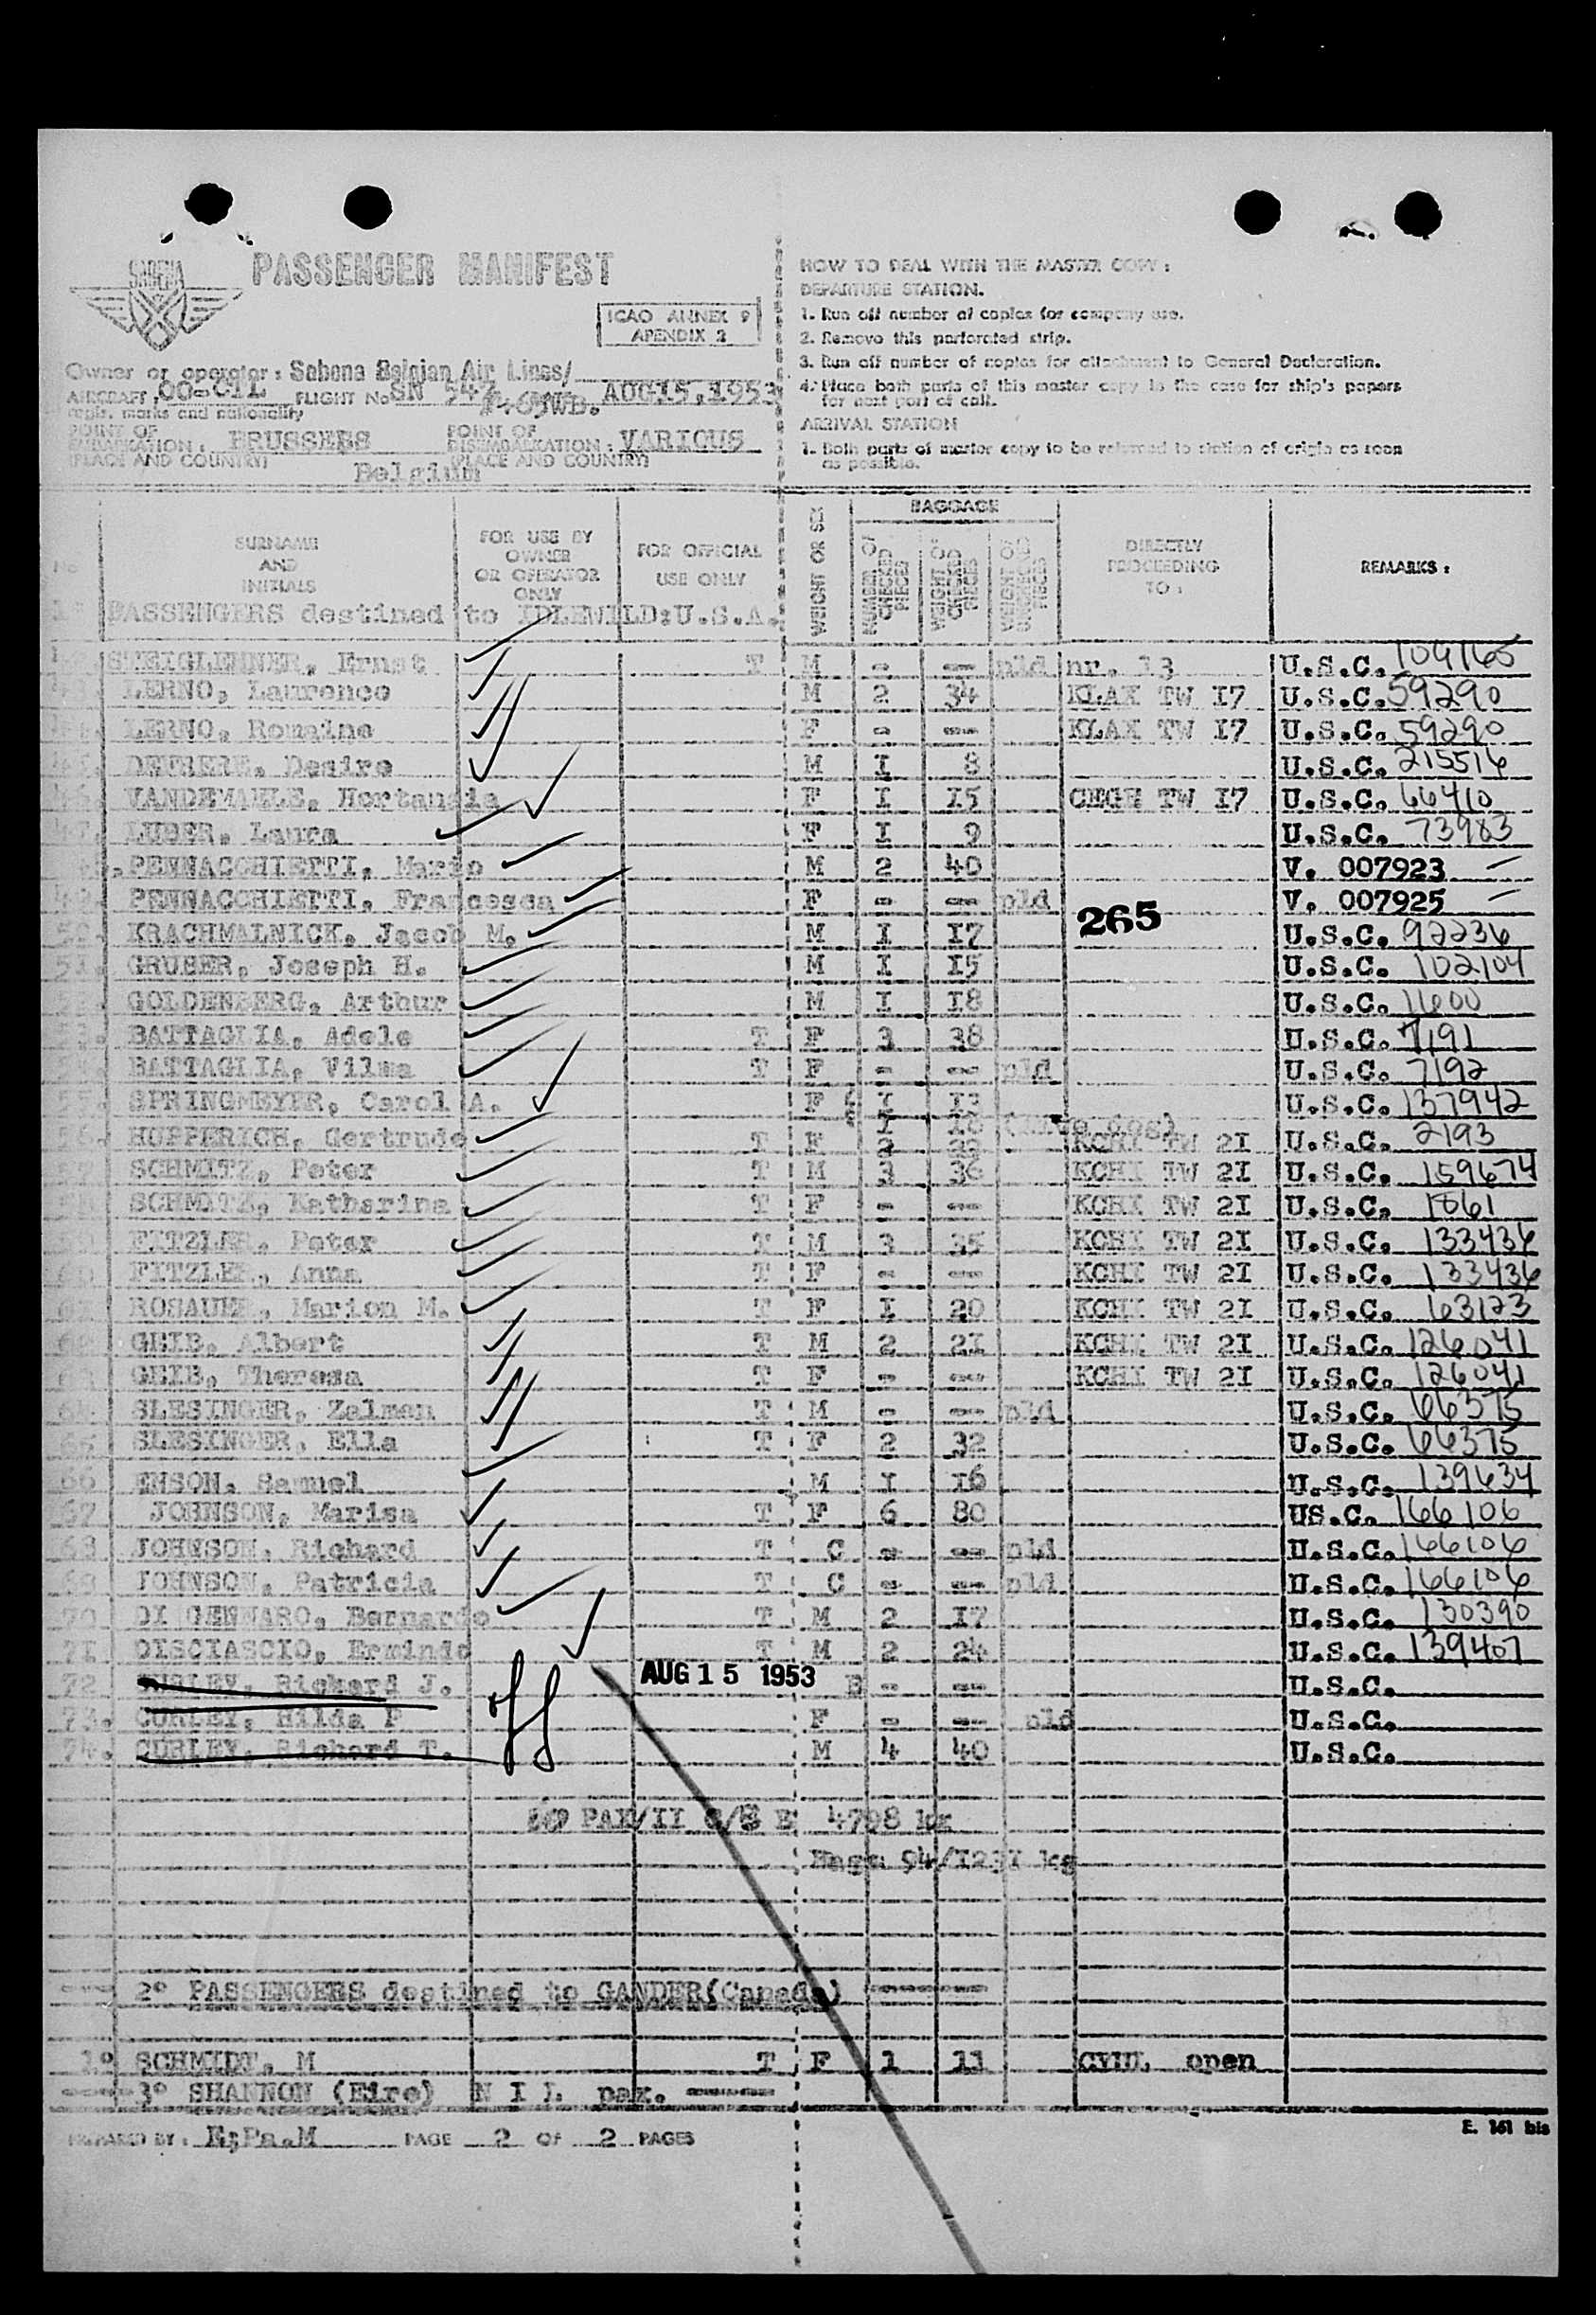 SABENA
PASSENGER MANIFEST
ICAO ANNEX 9
APENDIX 2
Owner or operator : Sabena Belgian Air Lines/
AIRCRAFT OO-CIL FLIGHT No SN 547 AUG15,1953
regis. marks and nationality
POINT OF EMBARKATION : BRUSSELS POINT OF DISEMBARKATION : VARIOUS
(PLACE AND COUNTRY) Belgium (PLACE AND COUNTRY)
HOW TO DEAL WITH THE MASTER COPY :
DEPARTURE STATION.
1. Run off number of copies for company use.
2. Remove this perforated strip.
3. Run off number of copies for attachment to General Declaration.
4. Place both parts of this master copy in the case for ship's papers
for next port of call.
ARRIVAL STATION
1. Both parts of master copy to be returned to station of origin as soon
as possible.
No SURNAME AND INITIALS FOR USE BY OWNER OR OPERATOR ONLY FOR OFFICIAL USE ONLY WEIGHT OR SEX BAGGAGE NUMBER OF CHECKED PIECES WEIGHT OF CHECKED PIECES WEIGHT OF UNCHECKED PIECES DIRECTLY PROCEEDING TO : REMARKS :
1° PASSENGERS destined to IDLEWILD:U.S.A.
STEIGLEHNER, Ernst T M - -- pld nr. 13 U.S.C. 104165
43. LERNO, Laurence M 2 34 KLAX TW I7 U.S.C. 59290
44. LERNO, Romaine F - -- KLAX TW I7 U.S.C. 59290
45. DEFRERE, Desire M I 8 U.S.C. 215516
46. VANDEMAELE, Hortansia F I I5 TW I7 U.S.C. 66410
47. LUBER, Laura F I 9 U.S.C. 73983
48. PENNACCHIETTI, Mario M 2 40 V. 007923
49. PENNACCHIETTI, Francesca F - -- pld V. 007925
265
50. KRACHMALNICK, Jacob M. M I I7 U.S.C. 92236
51. GRUBER, Joseph H. M I I5 U.S.C. 102104
52. GOLDENBERG, Arthur M I I8 U.S.C. 11600
53. BATTAGLIA, Adele T F 3 38 U.S.C. 7191
BATTAGLIA, Vilma T F - -- pld U.S.C. 7192
55. SPRINGMEYER, Carol A. F I I3 U.S.C. 137942
I (live dog)
56. HUPPERICH, Gertrude T F 2 KCHI TW 2I U.S.C. 2193
57 SCHMITZ, Peter T M 3 36 KCHI TW 2I U.S.C. 159674
58 SCHMITZ, Katharina T F - -- KCHI TW 2I U.S.C. 1861
59 FITZLER, Peter T M 3 35 KCHI TW 2I U.S.C. 133436
60 FITZLER, Anna T F - -- KCHI TW 2I U.S.C. 133436
61 ROSAUER, Marion M. T F I 20 KCHI TW 2I U.S.C. 63123
62 GEIB, Albert T M 2 2I KCHI TW 2I U.S.C. 126041
63 GEIB, Theresa T F - -- KCHI TW 2I U.S.C. 126041
64 SLESINGER, Zelman T M - -- pld U.S.C. 66375
65 SLESINGER, Ella T F 2 32 U.S.C. 66375
66 ENSON, Samuel M I I6 U.S.C. 139634
67 JOHNSON, Marisa T F 6 80 US.C. 166106
68 JOHNSON, Richard T C - -- pld U.S.C. 166106
69 JOHNSON, Patricia T C - -- pld U.S.C. 166106
70 DI GENNARO, Bernardo T M 2 I7 U.S.C. 130390
71 DISCIASCIO, Erminio T M 2 24 U.S.C. 139407
72 CURLEY, Richard J. AUG 15 1953 - -- U.S.C.
73. CURLEY, Hilda P F - -- pld U.S.C.
74. CURLEY, Richard T. M 4 40 U.S.C.
off
PAX/II 4798 kg
Bags 94/I23I kg
2° PASSENGERS destined to GANDER(Canada)
1° SCHMIDT, M T F 1 11 CYUL open
3° SHANNON (Eire) N I L pax.
PREPARED BY : PAGE 2 OF 2 PAGES
E. 161 bis